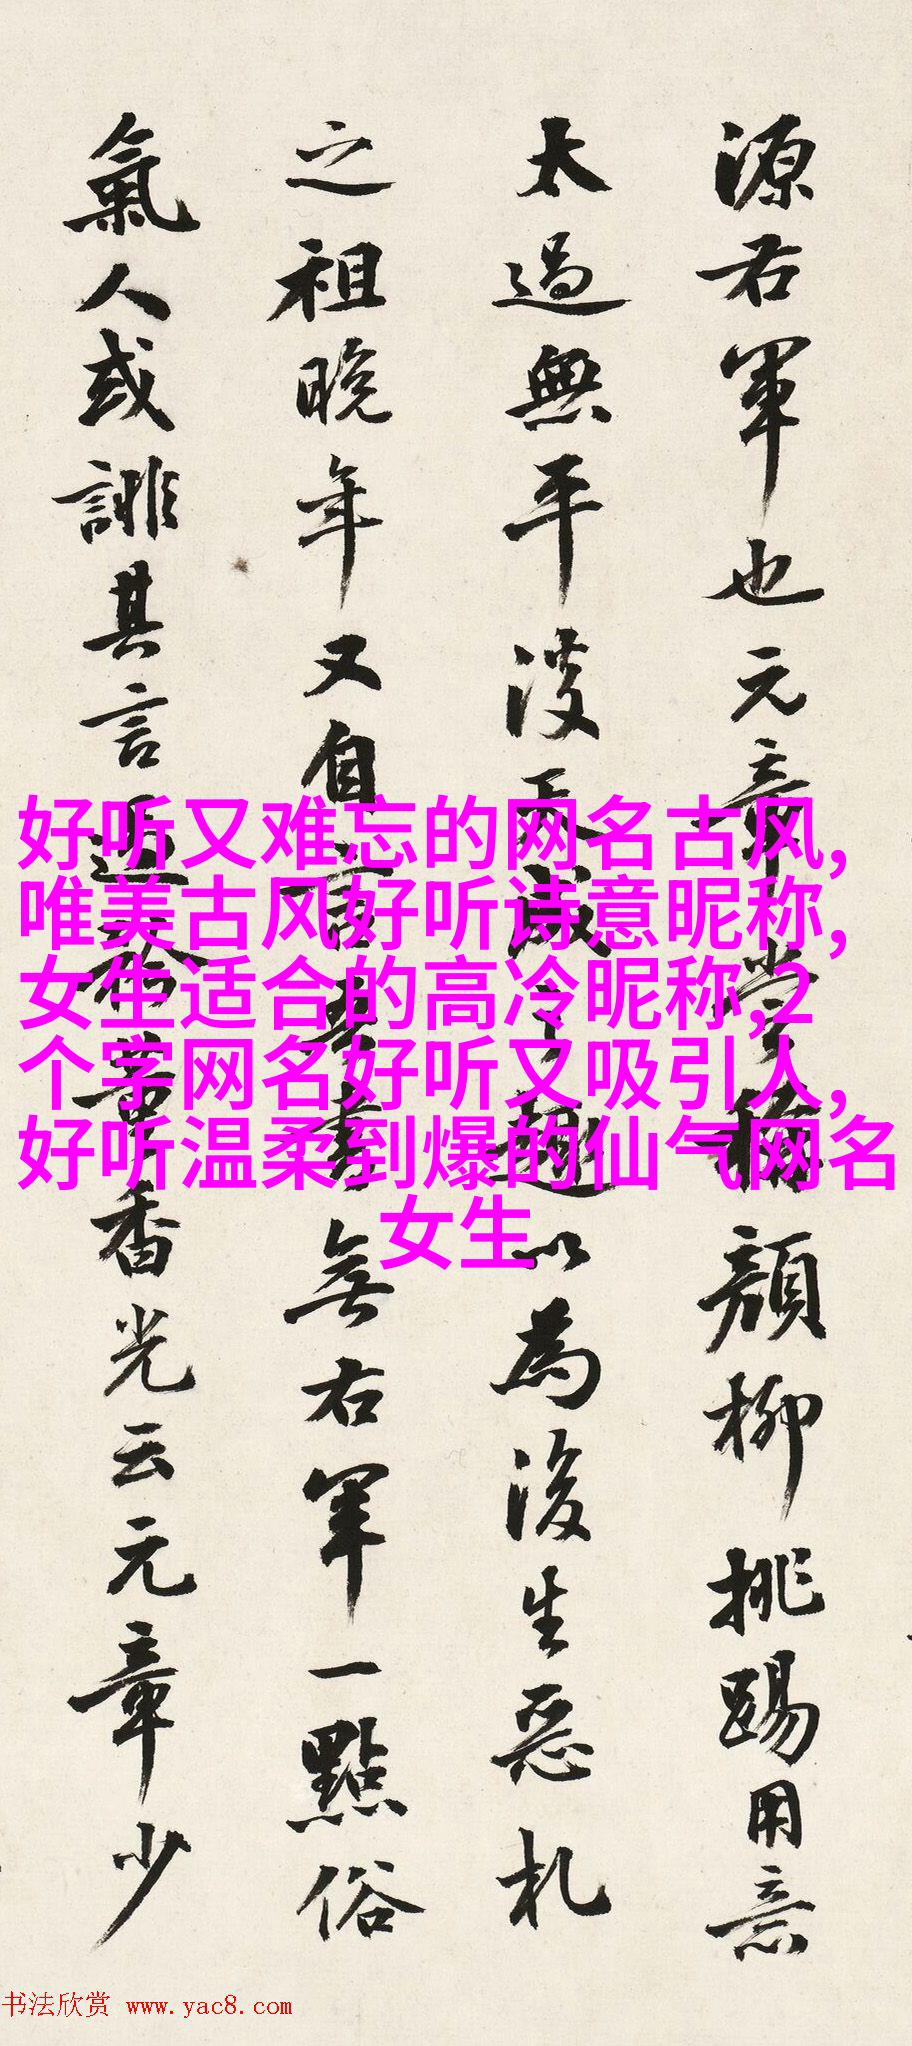 源右軍也元章嘗稱顏柳挑踢用意
太過無平淡天成之趣以為後生惡札
之祖晚年又自言吾書無右軍一點俗
氣人或誹其言董香光云元章少
好听又难忘的网名古风,
唯美古风好听诗意昵称,
女生适合的高冷昵称,2
个字网名好听又吸引人,
好听温柔到爆的仙气网名
女生
书法欣赏 www.yac8.com